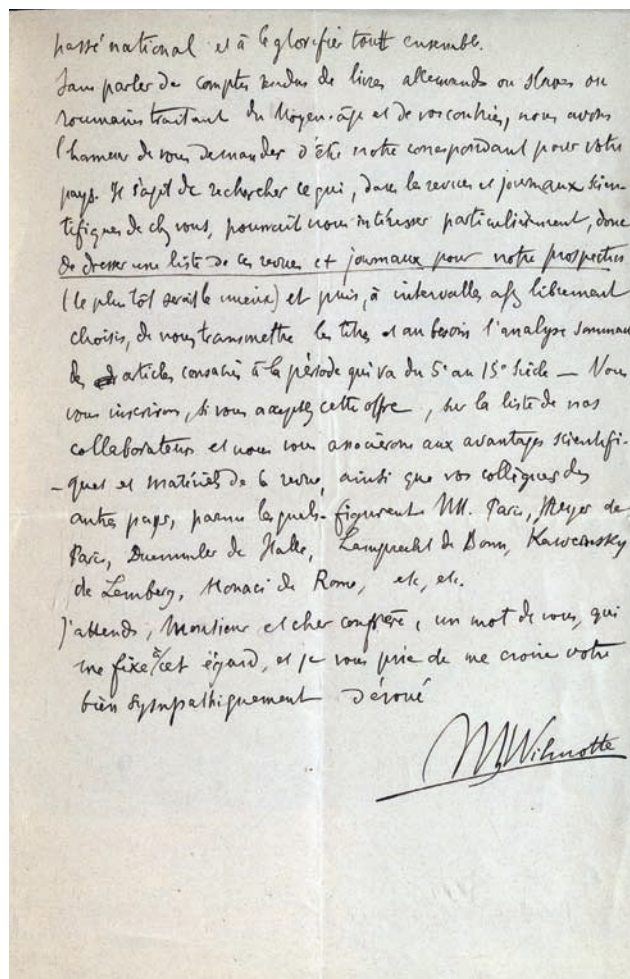 passé national et à le glorifier tout ensemble.
Sans parler de comptes rendus de livres allemands ou slaves ou
roumains traitant du Moyen-âge et de vos contrées, nous avons
l'honneur de vous demander d'être notre correspondant pour votre
pays. Il s'agit de rechercher ce qui, dans les revues et journaux scien-
tifiques de chez vous, pourrait nous intéresser particulièrement, donc
de dresser une liste de ces revues et journaux pour notre prospectus
(le plus tôt serait le mieux) et puis, à intervalles assez librement
choisis, de nous transmettre les titres et au besoin l'analyse sommaire
des articles consacrés à la période qui va du 5e au 15e siècle — Nous
vous inscrirons, si vous acceptez cette offre, sur la liste de nos
collaborateurs et nous vous associerons aux avantages scientifi-
-ques et matériels de la revue, ainsi que vos collègues des
autres pays, parmi lesquels figurent MM. Paris, Meyer de
Paris, Duemmler de Halle, Lamprecht de Bonn, Kawczynsky
de Lemberg, Monaci de Rome, etc, etc.
J'attends, Monsieur et cher confrère, un mot de vous, qui
me fixe à cet égard, et je vous prie de me croire votre
bien sympathiquement dévoué
MWilmotte